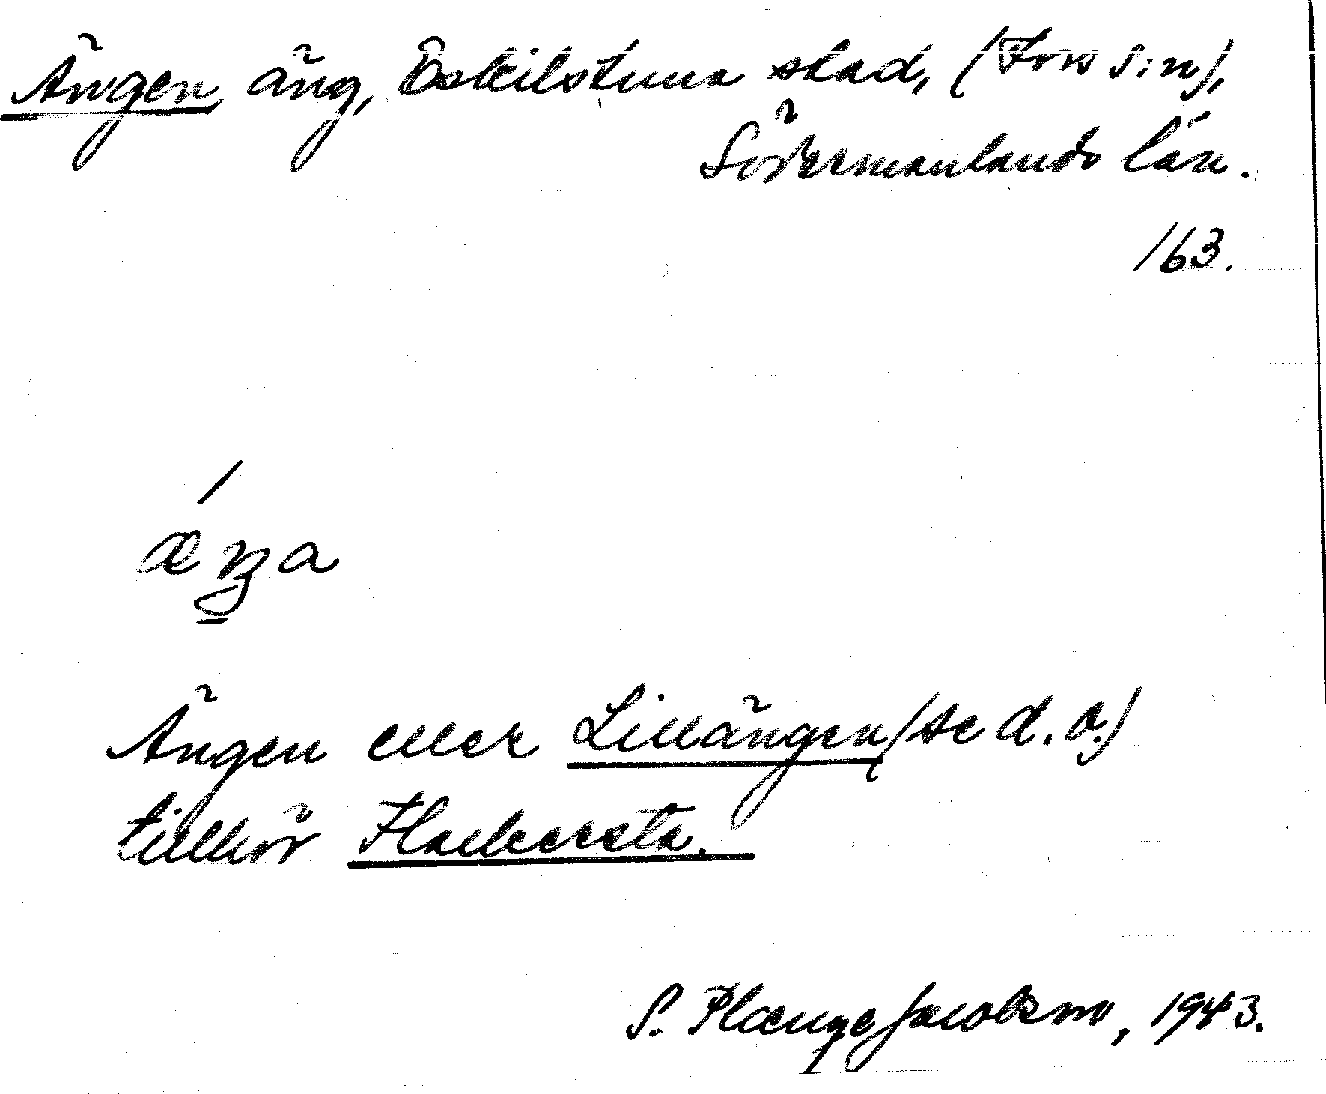 Ängen, äng, Eskilstuna stad, (Fors s:n),
Södermanlands län.
163.
Ängen eller Lillängen (se d. o.)
tillhör Flackersta.
S. Plænge Jacobson, 1943.